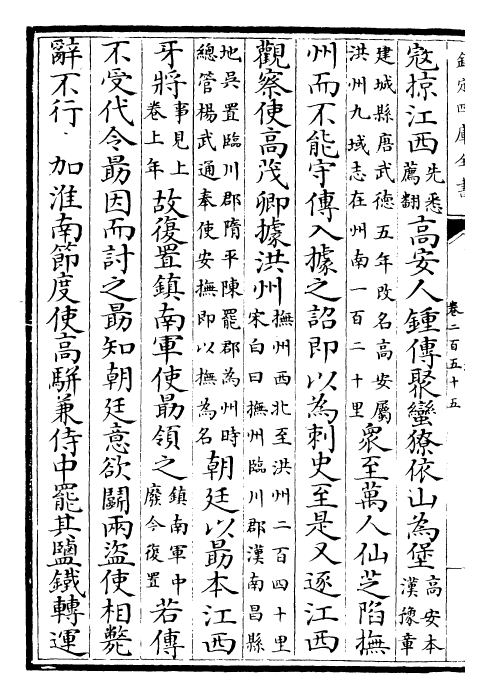 欽定四庫全書
卷二百五十五
寇掠江西先悉薦翻高安人鍾傳聚蠻獠依山為堡高安本漢豫章
建城縣唐武德五年改名高安屬洪州九域志在州南一百二十里眾至萬人仙芝陷撫
州而不能守傳入據之詔即以為刺史至是又逐江西
觀察使高茂卿據洪州撫州西北至洪州二百四十里宋白曰撫州臨川郡漢南昌縣
地吳置臨川郡隋平陳罷郡為州時總管楊武通奉使安撫即以撫為名朝廷以勗本江西
牙將事見上卷上年故復置鎮南軍使勗領之鎮南軍中廢今復置若傳
不受代令勗因而討之勗知朝廷意欲鬭兩盜使相斃
辭不行 加淮南節度使高駢兼侍中罷其鹽鐵轉運